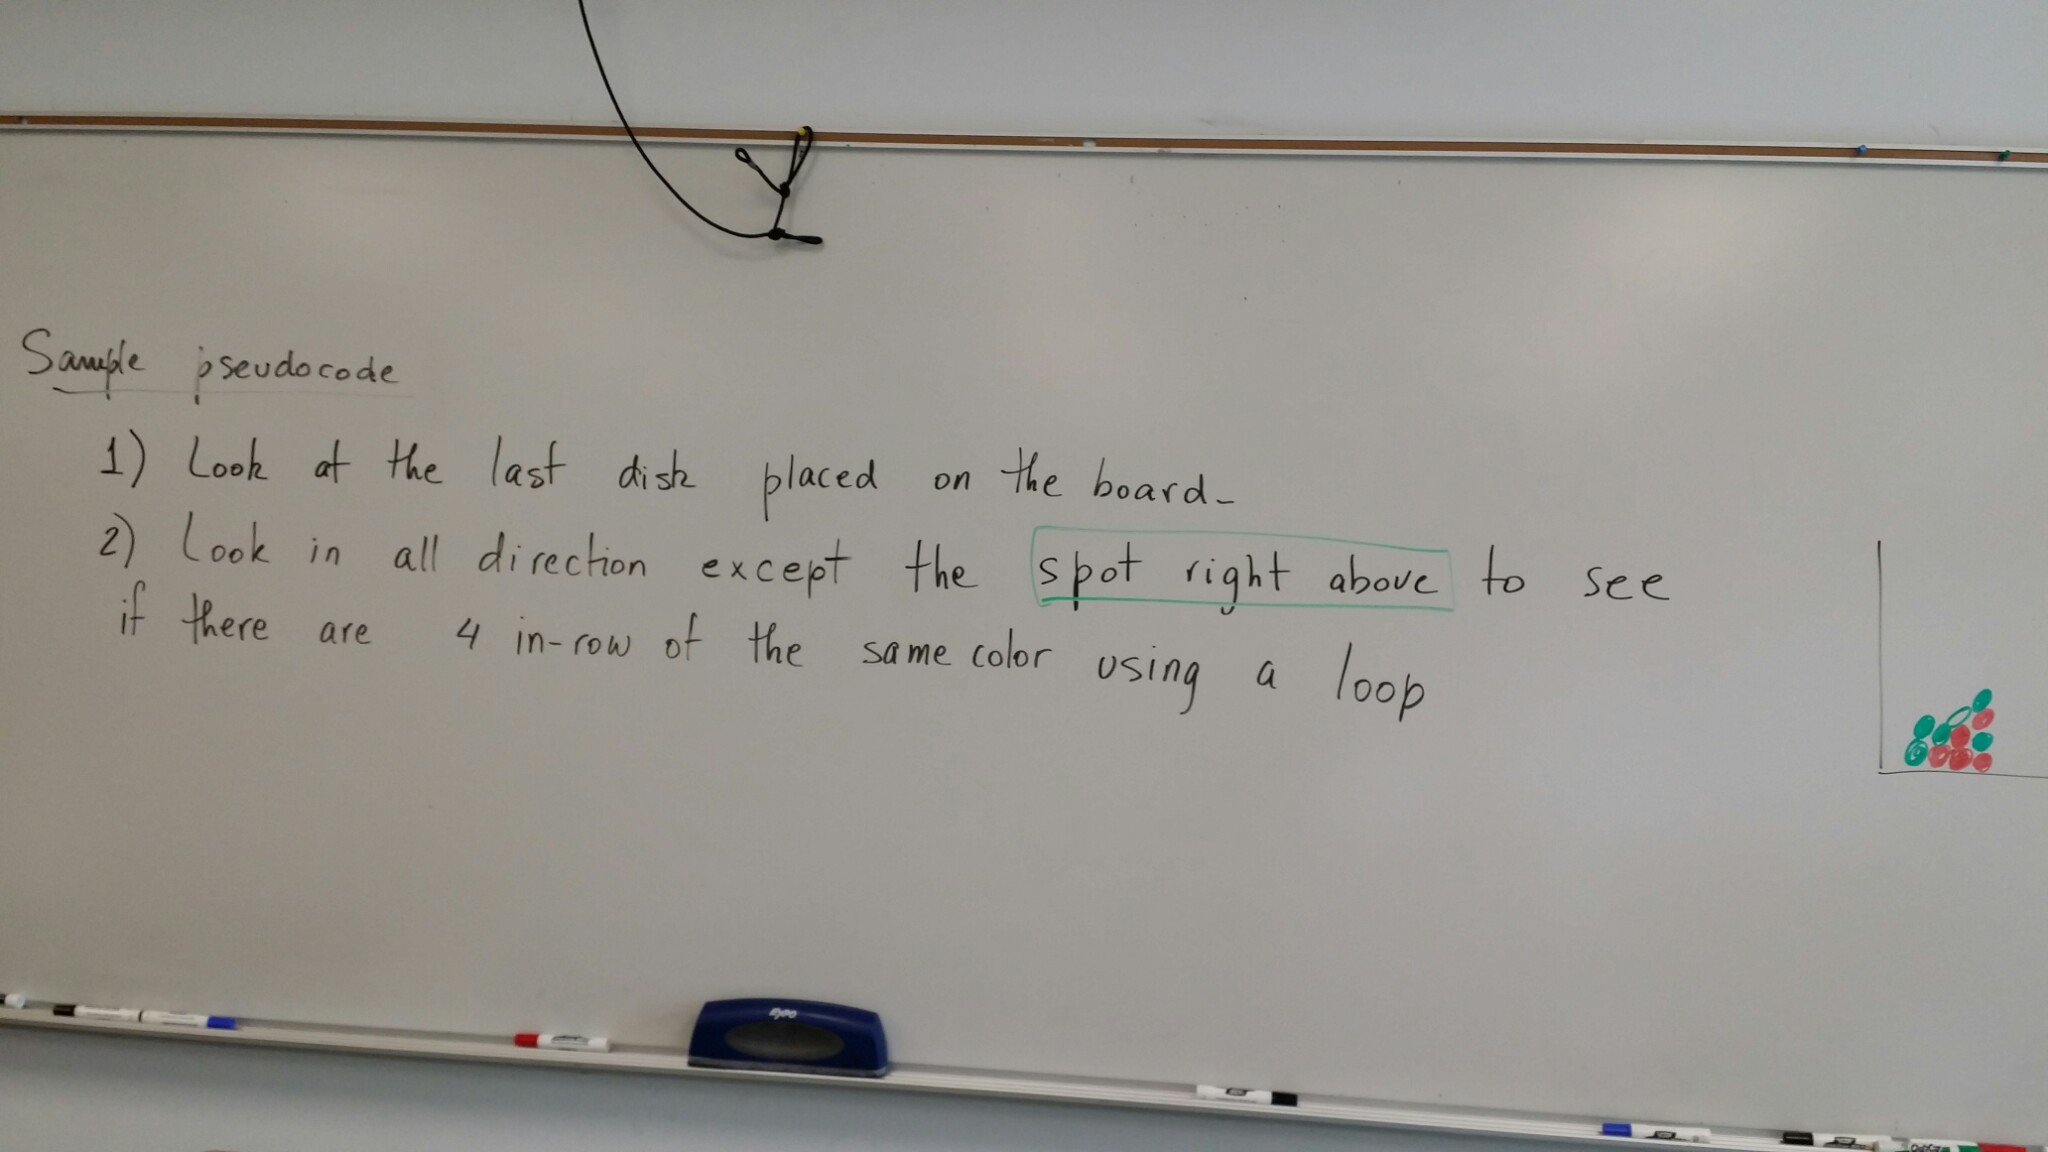 Sample pseudocode
1) Look at the last disk placed on the board.
2) Look in all direction except the spot right above to see
if there are 4 in-row of the same color using a loop
EXPO